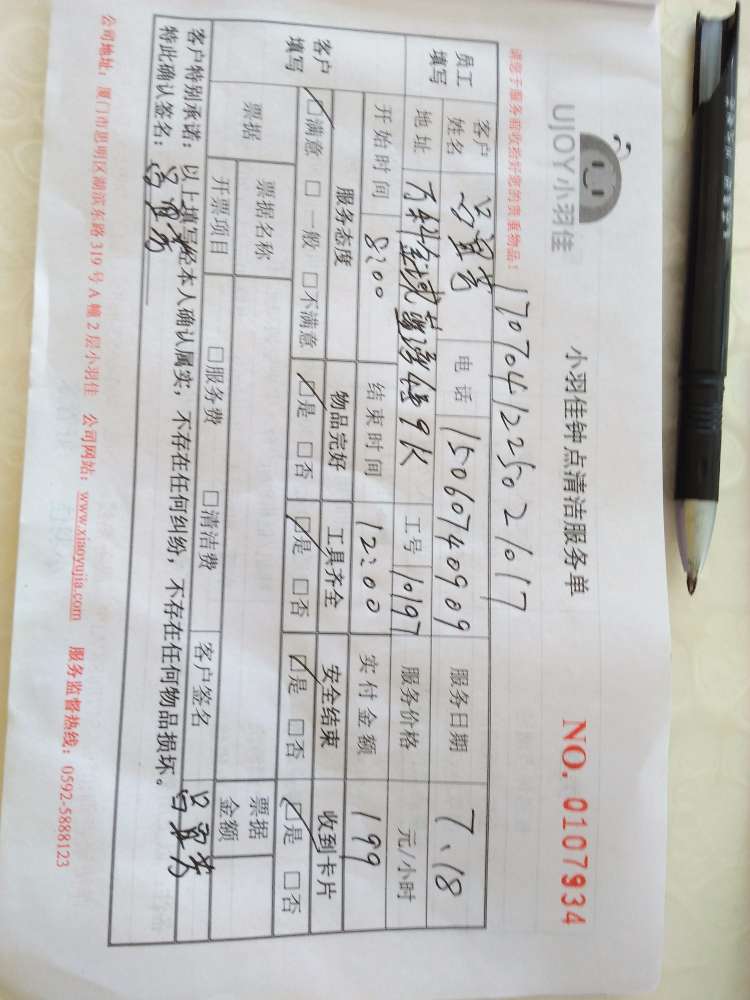 UJOY小羽佳
小羽佳钟点清洁服务单
NO. 0107934
请您于服务前收拾好您的贵重物品！
1707041225021017
员工填写
客户姓名 电话 15060740909 服务日期 7、18
地址 万科金域 9K 工号 10197 服务价格 元/小时
开始时间 8:00 结束时间 12:00 实付金额 199
客户填写
服务态度 物品完好 工具齐全 安全结束 收到卡片
☑满意 □一般 □不满意 ☑是 □否 ☑是 □否 ☑是 □否 ☑是 □否
票据 票据名称 □服务费 □清洁费 票据金额
开票项目 客户签名
客户特别承诺：以上填写经本人确认属实，不存在任何纠纷，不存在任何物品损坏。
特此确认签名：
公司地址：厦门市思明区湖滨东路319号A幢2层小羽佳 公司网站：www.xiaoyujia.com 服务监督热线：0592-5888123